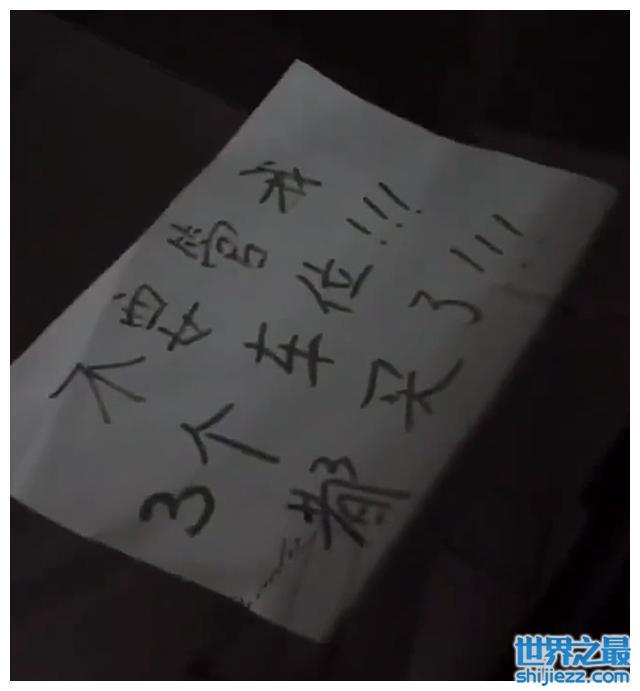 不要管我
3个车位!!!
都买了!!!
世界之最
shijiezz.com